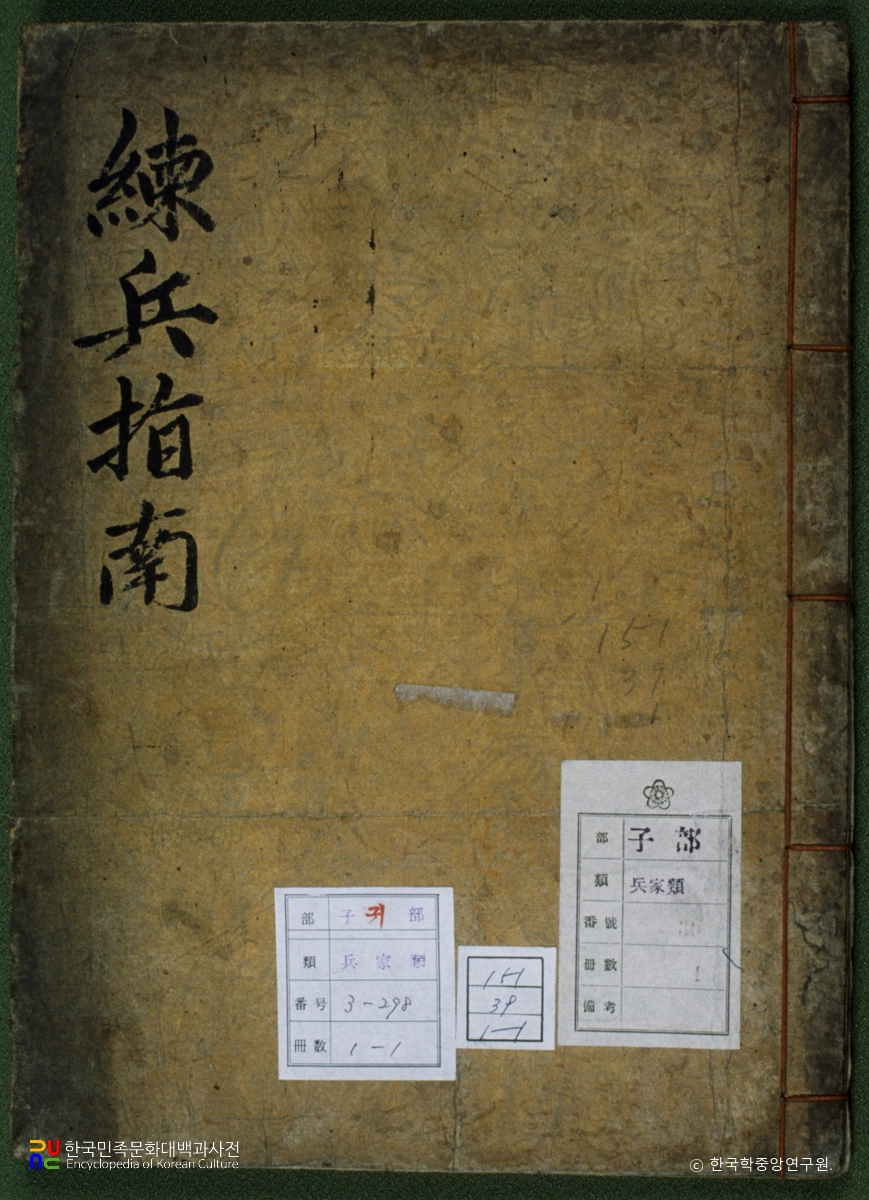 練兵指南
151
39
1
部 子 귀 部
類 兵家類
番号 3-298
冊数 1-1
151
39
1-1
部 子部
類 兵家類
番號
冊數 1
備考
한국민족문화대백과사전
Encyclopedia of Korean Culture
© 한국학중앙연구원.